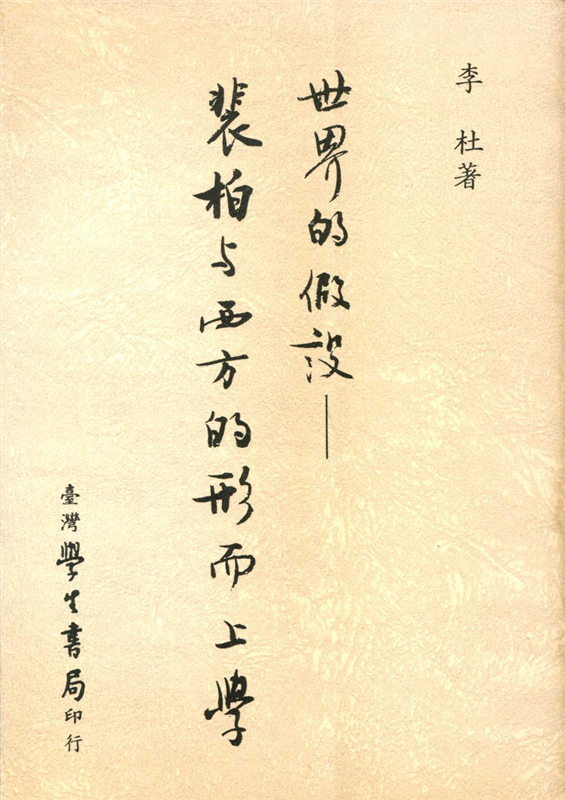 李杜著
世界的假設——
裴柏与西方的形而上學
臺灣學生書局印行